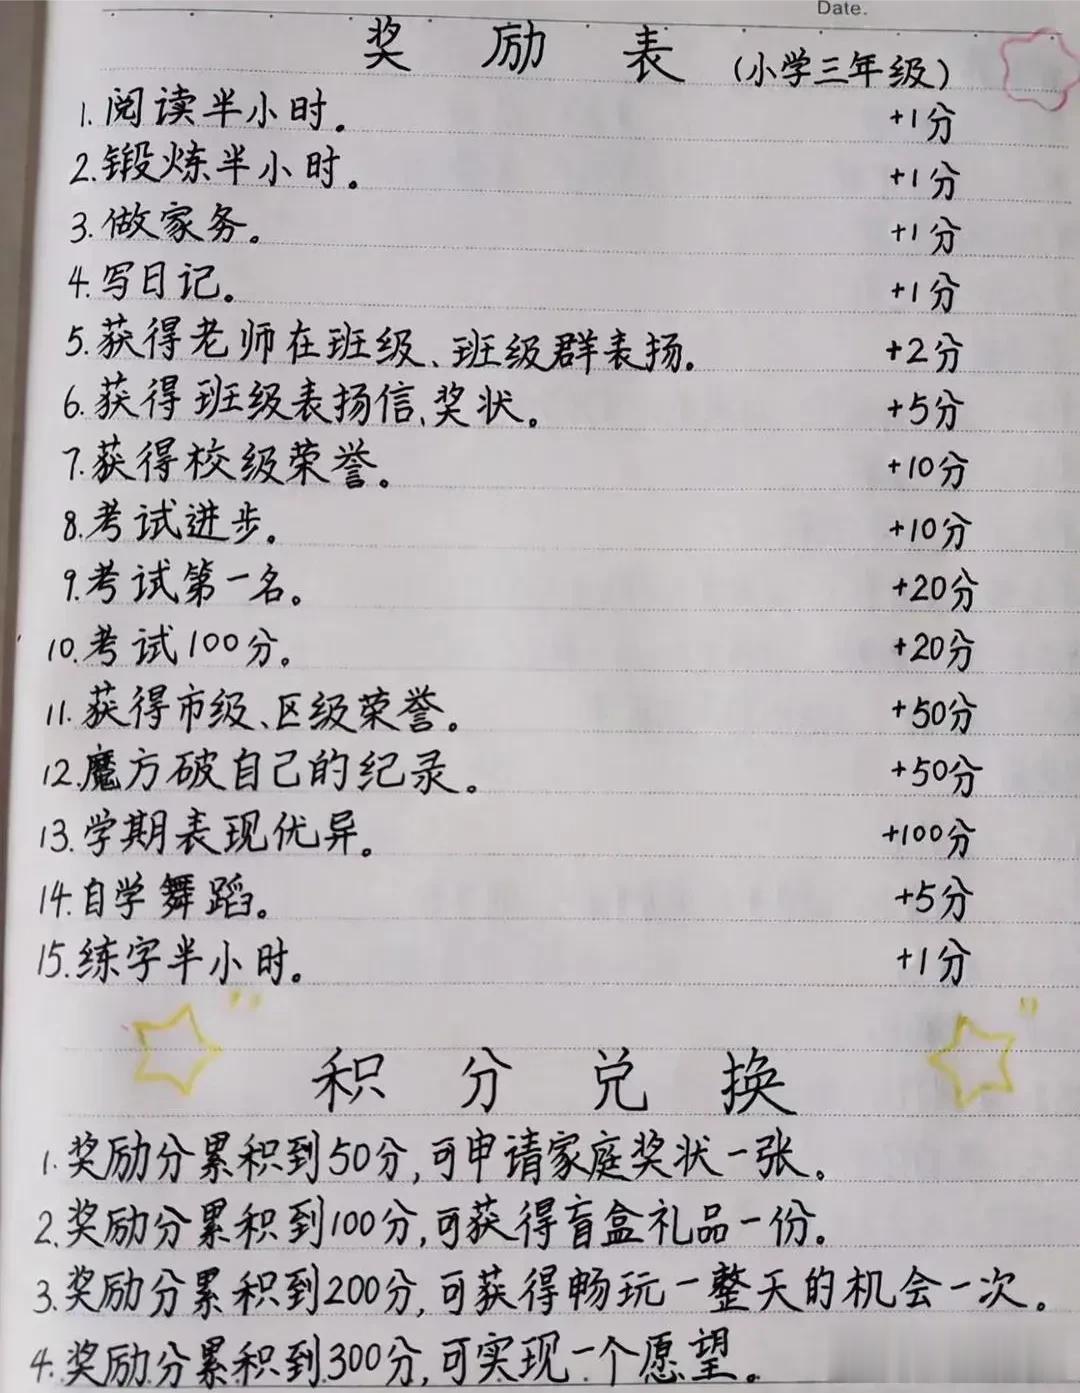 Date.
奖励表(小学三年级)
1.阅读半小时。 +1分
2.锻炼半小时。 +1分
3.做家务。 +1分
4.写日记。 +1分
5.获得老师在班级、班级群表扬。 +2分
6.获得班级表扬信、奖状。 +5分
7.获得校级荣誉。 +10分
8.考试进步。 +10分
9.考试第一名。 +20分
10.考试100分。 +20分
11.获得市级、区级荣誉。 +50分
12.魔方破自己的纪录。 +50分
13.学期表现优异。 +100分
14.自学舞蹈。 +5分
15.练字半小时。 +1分
积分兑换
1.奖励分累积到50分,可申请家庭奖状一张。
2.奖励分累积到100分,可获得盲盒礼品一份。
3.奖励分累积到200分,可获得畅玩一整天的机会一次。
4.奖励分累积到300分,可实现一个愿望。